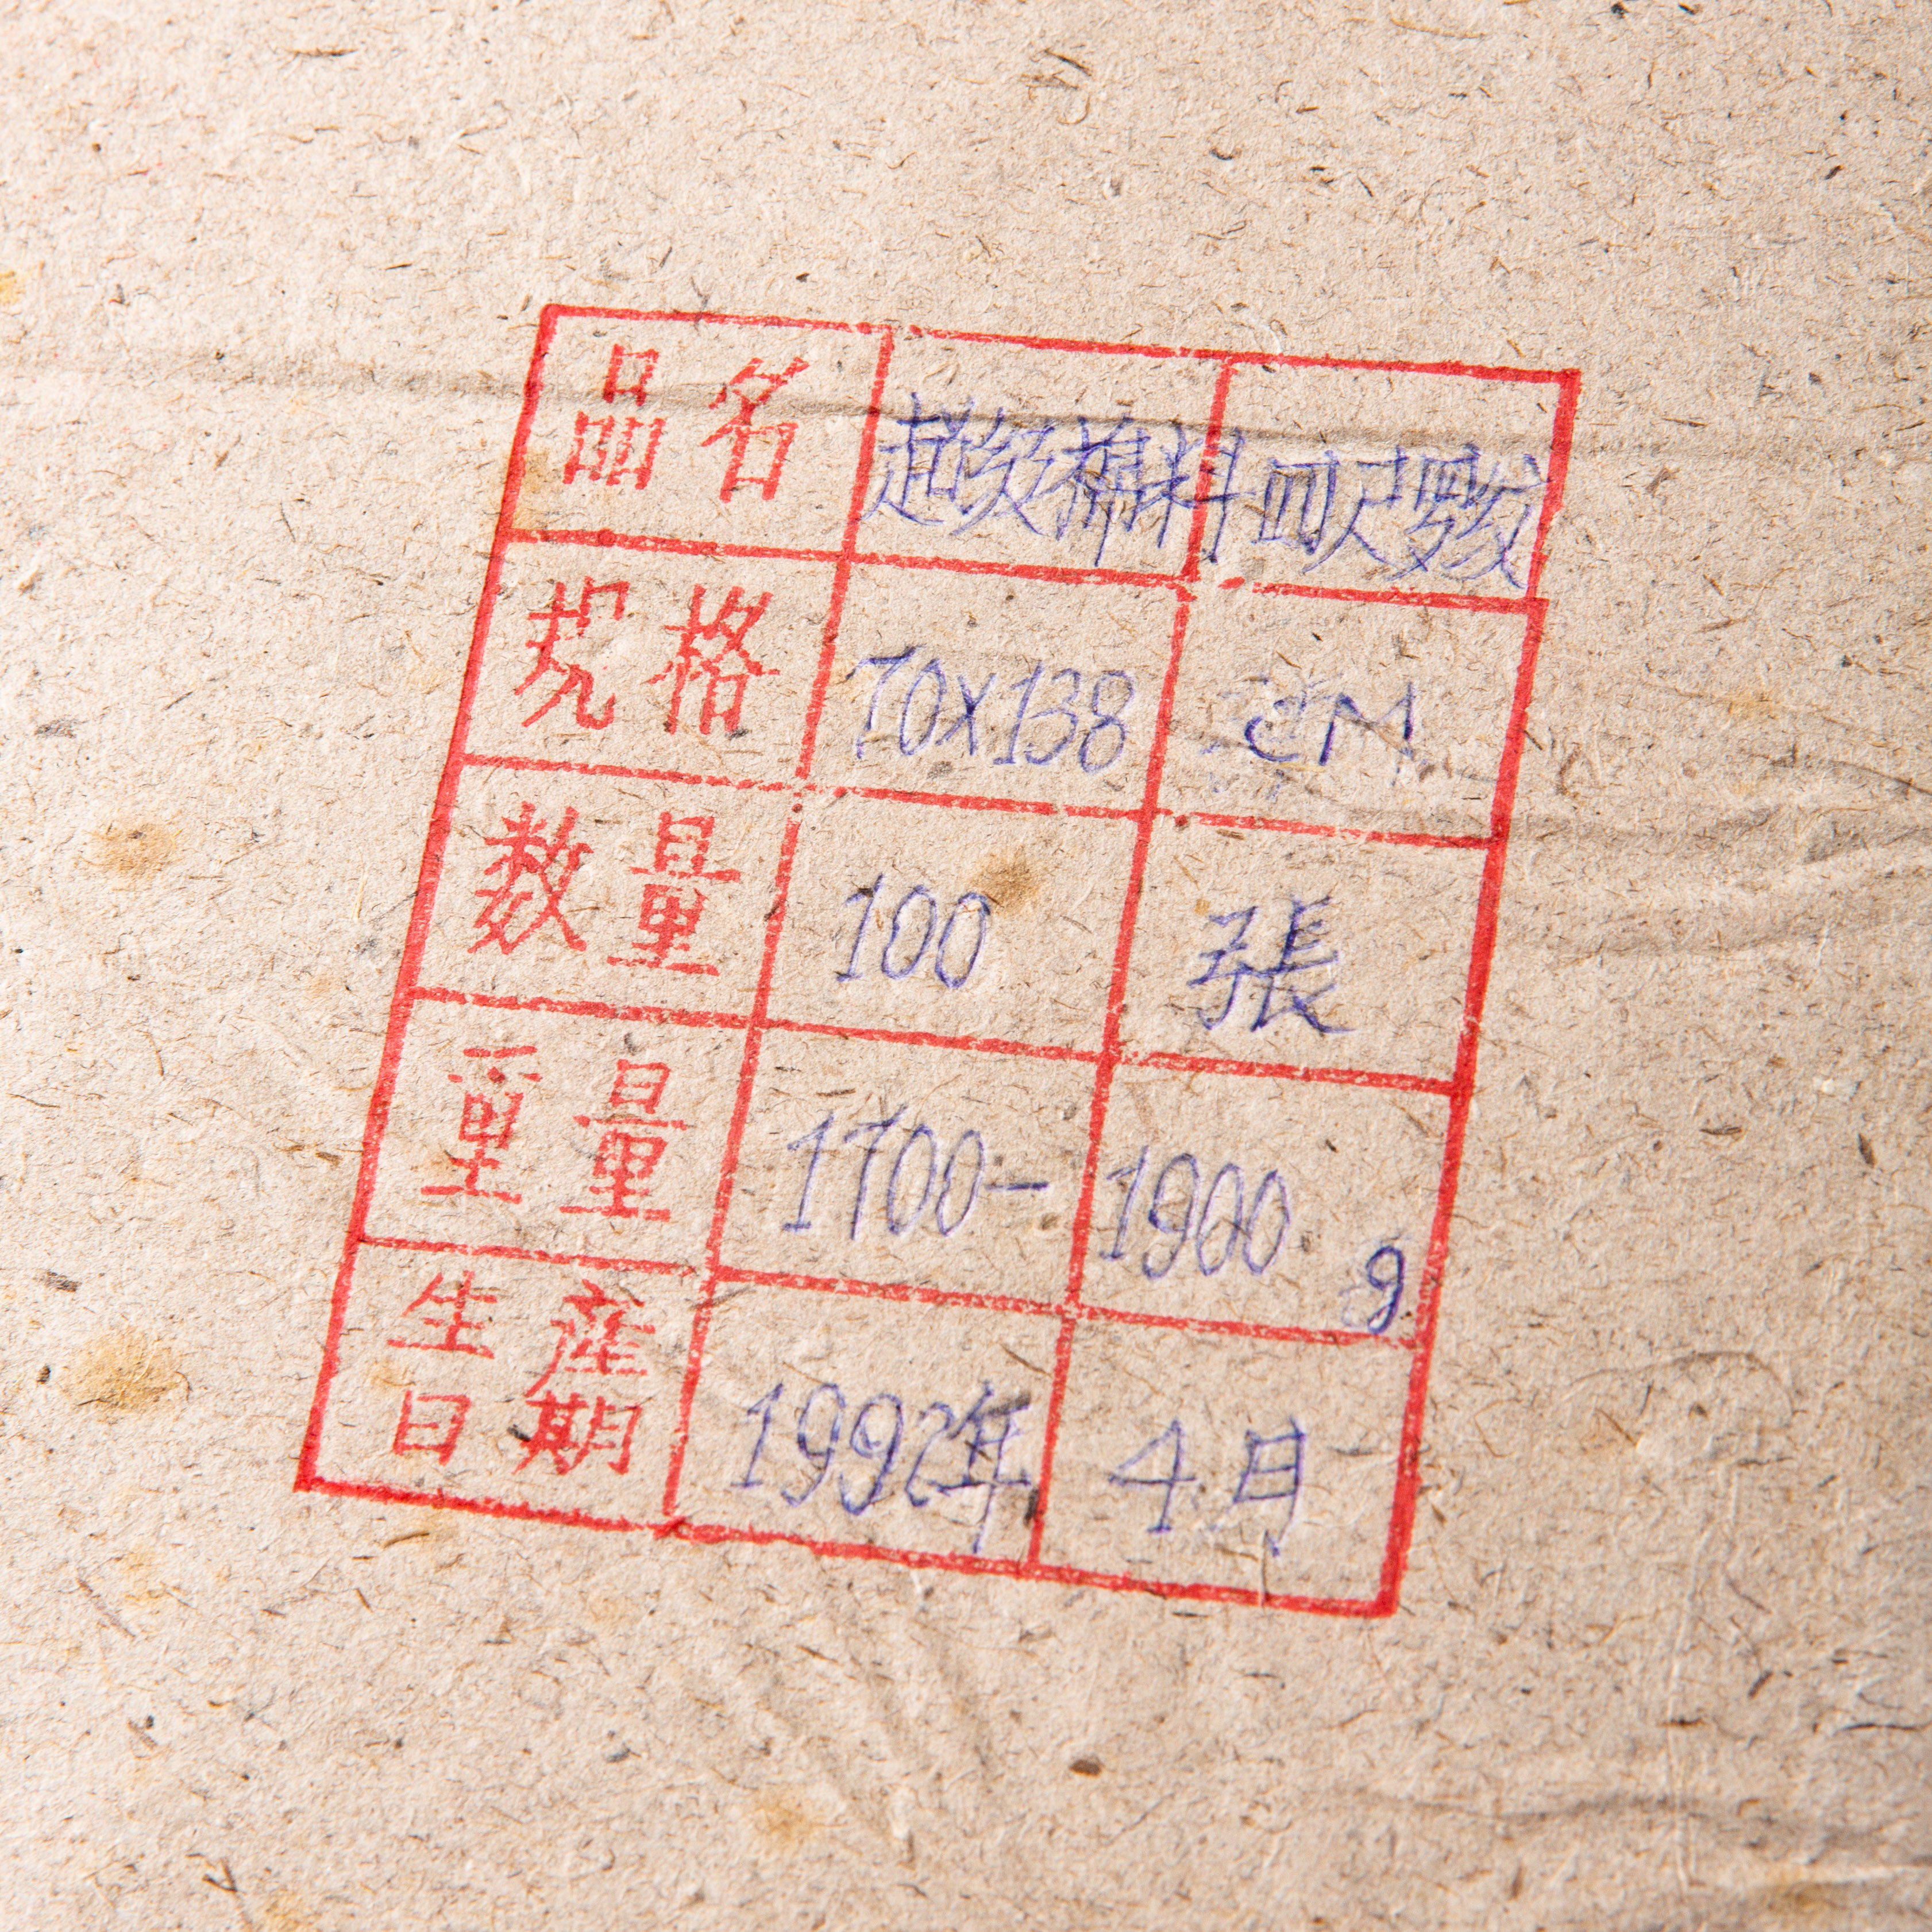 品名 超级棉料四尺
规格 70x138 CM
数量 100 張
重量 1700- 1900 g
生産
日期 1992年 4月